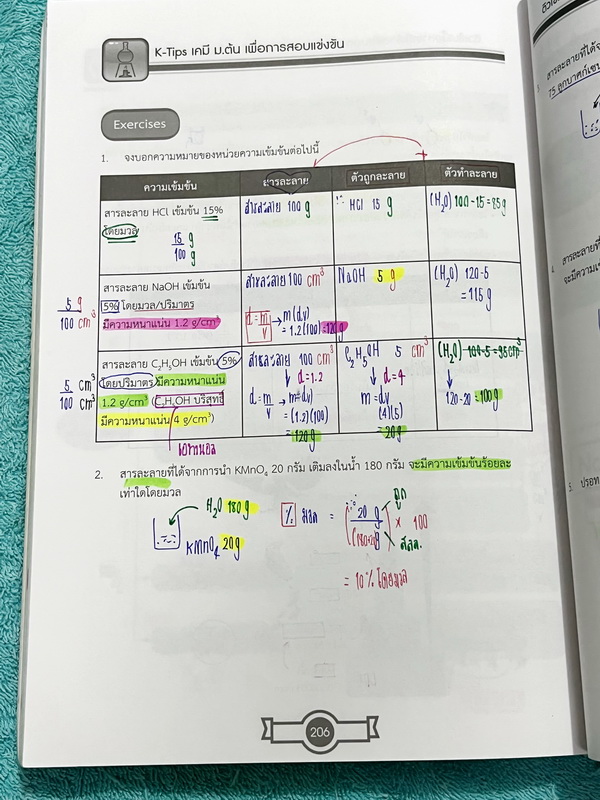 K-Tips เคมี ม.ต้น เพื่อการสอบแข่งขัน
Exercises
1. จงบอกความหมายของหน่วยความเข้มข้นต่อไปนี้
ความเข้มข้น สารละลาย ตัวถูกละลาย ตัวทำละลาย
สารละลาย HCl เข้มข้น 15%
โดยมวล
15 g
100 g
สารละลาย 100 g
∵ HCl 15 g
(H₂O) 100-15 = 85g
สารละลาย NaOH เข้มข้น
5% โดยมวล/ปริมาตร
มีความหนาแน่น 1.2 g/cm³
5 g
100 cm³
สารละลาย 100 cm³
d = m/v → m(d.v)
= 1.2(100) = 120 g
NaOH 5 g
(H₂O) 120-5
= 115 g
สารละลาย C₂H₅OH เข้มข้น 5%
โดยปริมาตร มีความหนาแน่น
1.2 g/cm³ (C₂H₅OH บริสุทธิ์
มีความหนาแน่น 4 g/cm³)
5 cm³
100 cm³
เอทานอล
สารละลาย 100 cm³
d = 1.2
d = m/v → m=dv
= (1.2)(100)
= 120g
C₂H₅OH 5 cm³
d = 4
m = dv
(4)(5)
= 20g
(H₂O) 100-5 = 95cm³
120-20 = 100g
2. สารละลายที่ได้จากการนำ KMnO₄ 20 กรัม เติมลงในน้ำ 180 กรัม จะมีความเข้มข้นร้อยละ
เท่าใดโดยมวล
H₂O 180g
KMnO₄ 20g
% มวล = (20 g / (180+20)g) × 100
ถูก
สลล.
= 10% โดยมวล
206
สารละลายที่ได้จ
75 ลูกบาศก์เซน
4.
สารละลายที่
จะมีความเข้
5. ปรอท